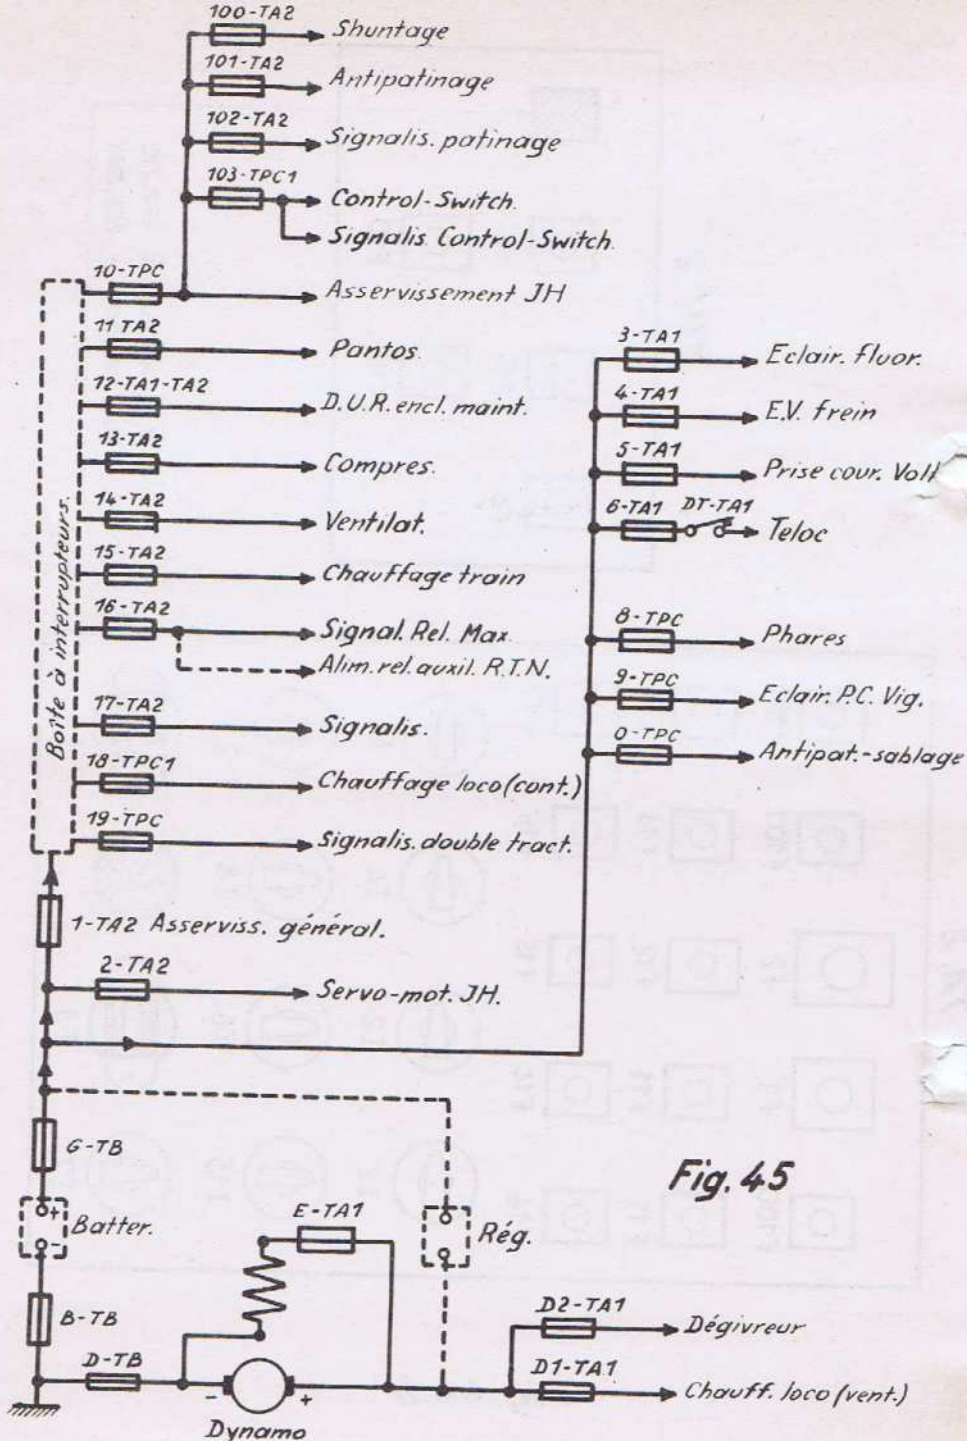 100-TA2
Shuntage
101-TA2
Antipatinage
102-TA2
Signalis. patinage
103-TPC1
Control-Switch.
Signalis. Control-Switch.
10-TPC
Asservissement JH
11 TA2
Pantos.
12-TA1-TA2
D.U.R. encl. maint.
13-TA2
Compres.
14-TA2
Ventilat.
15-TA2
Chauffage train
16-TA2
Signal. Rel. Max.
Alim. rel. auxil. R.T.N.
17-TA2
Signalis.
18-TPC1
Chauffage loco (cont.)
19-TPC
Signalis. double tract.
Boîte à interrupteurs.
3-TA1
Eclair. fluor.
4-TA1
E.V. frein
5-TA1
Prise cour. Volt
6-TA1
DT-TA1
Teloc
8-TPC
Phares
9-TPC
Eclair. P.C. Vig.
0-TPC
Antipat.-sablage
1-TA2 Asserviss. général.
2-TA2
Servo-mot. JH.
G-TB
+
Batter.
-
B-TB
D-TB
E-TA1
Rég.
- +
Dynamo
D2-TA1
Dégivreur
D1-TA1
Chauff. loco (vent.)
Fig. 45